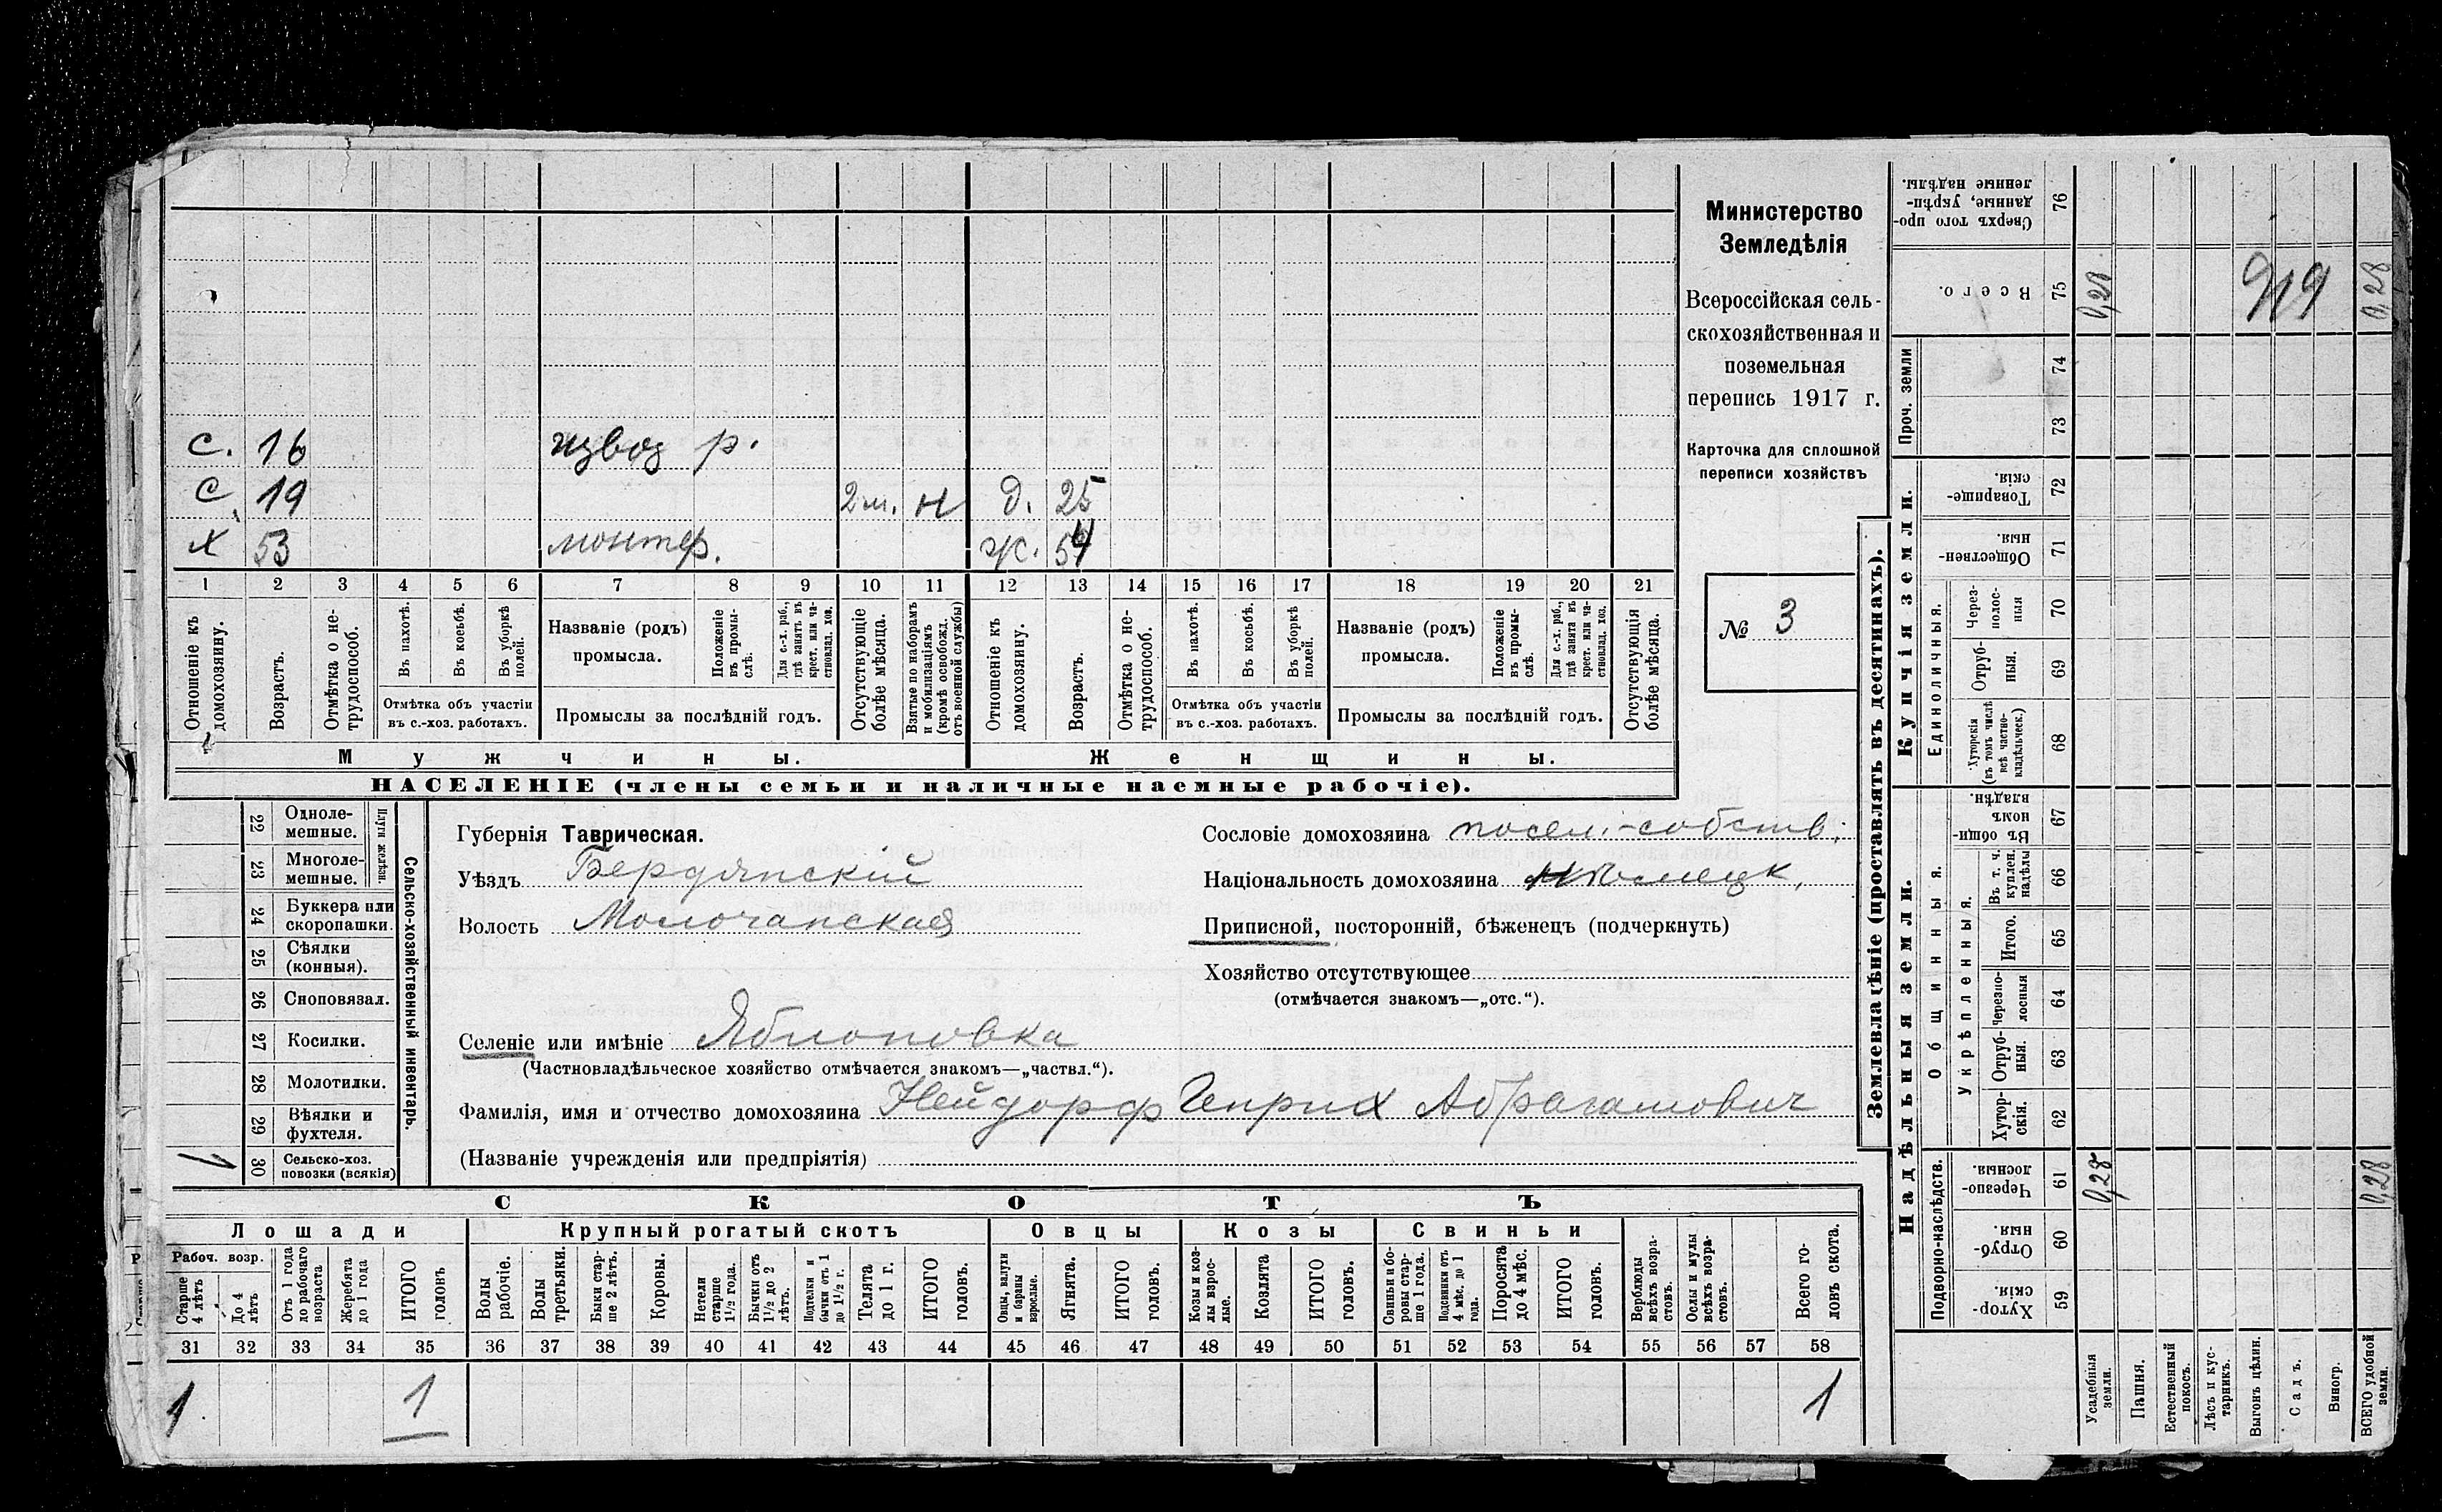 с. 16 извоз р.
с. 19 2 м. н д. 25
х 53 монтер. ж. 54
1 2 3 4 5 6 7 8 9 10 11 12 13 14 15 16 17 18 19 20 21
Отношеніе къ домохозяину.
Возрастъ.
Отмѣтка о не-трудоспособ.
Въ пахотѣ.
Въ косьбѣ.
Въ уборкѣ полей.
Отмѣтка объ участіи
въ с.-хоз. работахъ.
Названіе (родъ)
промысла.
Положеніе въ промы-слѣ.
Для с.-х. раб., гдѣ занятъ въ крест. или ча-стновлад. хоз.
Промыслы за послѣдній годъ.
Отсутствующіе болѣе мѣсяца.
Взятые по наборамъ и мобилизаціямъ (кромѣ освобожд. отъ военной службы)
Отношеніе къ домохозяину.
Возрастъ.
Отмѣтка о не-трудоспособ.
Въ пахотѣ.
Въ косьбѣ.
Въ уборкѣ полей.
Отмѣтка объ участіи
въ с.-хоз. работахъ.
Названіе (родъ)
промысла.
Положеніе въ промы-слѣ.
Для с.-х. раб., гдѣ занята въ крест. или ча-стновлад. хоз.
Промыслы за послѣдній годъ.
Отсутствующія болѣе мѣсяца.
Мужчины. Женщины.
НАСЕЛЕНІЕ (члены семьи и наличные наемные рабочіе).
Министерство
Земледѣлія
Всероссійская сель-
скохозяйственная и
поземельная
перепись 1917 г.
Карточка для сплошной
переписи хозяйствъ
№ 3
Сельско-хозяйственный инвентарь.
Плуги желѣзн.
22 Одноле-
мешные.
23 Многоле-
мешные.
24 Буккера или
скоропашки.
25 Сѣялки
(конныя).
26 Сноповязал.
27 Косилки.
28 Молотилки.
29 Вѣялки и
фухтеля.
30 Сельско-хоз.
повозки (всякія)
1
Губернія Таврическая.
Уѣздъ Бердянскій
Волость Молочанская
Селеніе или имѣніе Яблоновка
(Частновладѣльческое хозяйство отмѣчается знакомъ—„частвл.“).
Фамилія, имя и отчество домохозяина Нейдорф Генрих Абрагамович
(Названіе учрежденія или предпріятія)
Сословіе домохозяина посел.-собств.
Національность домохозяина нѣмецк.
Приписной, посторонній, бѣженецъ (подчеркнуть)
Хозяйство отсутствующее
(отмѣчается знакомъ—„отс.“).
СКОТЪ
Лошади Крупный рогатый скотъ Овцы Козы Свиньи
Рабоч. возр.
Старше 4 лѣтъ
До 4 лѣтъ
Отъ 1 года до рабочаго возраста
Жеребята до 1 года
ИТОГО головъ
Волы рабочіе.
Волы третьяки.
Быки стар-ше 2 лѣтъ.
Коровы.
Нетели старше 1½ года.
Бычки отъ 1½ до 2 лѣтъ.
Подтелки и бычки отъ 1 до 1½ г.
Телята до 1 г.
ИТОГО головъ.
Овцы, валухи и бараны взрослые.
Ягнята.
ИТОГО головъ.
Козы и коз-лы взрос-лые.
Козлята
ИТОГО головъ.
Свиньи и бо-ровы стар-ше 1 года.
Подсвинки отъ 4 мѣс. до 1 года.
Поросята до 4 мѣс.
ИТОГО головъ.
Верблюды всѣхъ возра-стовъ.
Ослы и мулы всѣхъ возра-стовъ.
Всего го-ловъ скота.
31 32 33 34 35 36 37 38 39 40 41 42 43 44 45 46 47 48 49 50 51 52 53 54 55 56 57 58
1 1 1
Землевладѣніе (проставлять въ десятинахъ).
Надѣльныя земли.
Купчія земли.
Проч. земли
Подворно-наслѣдств.
Общинныя.
Укрѣпленныя.
Единоличныя.
59 Хутор-скія.
60 Отруб-ныя.
61 Черезпо-лосныя.
62 Хутор-скія.
63 Отруб-ныя.
64 Черезпо-лосныя
65 Итого.
66 Въ т. ч. куплен. надѣлы
67 Въ общи-номъ владѣн.
68 Хуторскія (въ томъ числѣ всѣ частно-владѣльческ.)
69 Отруб-ныя.
70 Через-полос-ныя
71 Обществен-ныя
72 Товарище-скія.
73
74
75 Всего.
76 Сверхъ того про-данные, укрѣп-ленные надѣлы.
Усадебныя земли.
Пашня.
Естественный покосъ.
Лѣсъ и кус-тарникъ.
Выгонъ цѣлин.
Садъ.
Виногр.
ВСЕГО удобной земли.
0,28 0,28
0,28 0,28
919